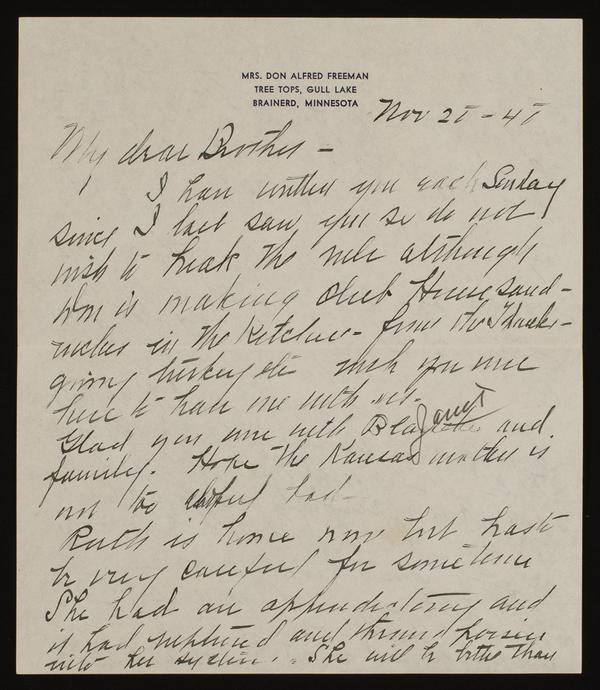 MRS. DON ALFRED FREEMAN
TREE TOPS, GULL LAKE
BRAINERD, MINNESOTA
Nov 25 - 45
My dear Brother -
I have written you each Sunday
since I last saw you so do not
wish to break the rule although
Don is making club House sand-
wiches in the Kitchen - from the Thanks-
giving turkey etc wish you were
here to have one with us.
Glad you are with Janet and
family. Hope the Kansas weather is
not too bad -
Ruth is home now but has to
be very careful for sometime
She had an appendectomy and
it had ruptured and thrown poison
into her system. She will be better than